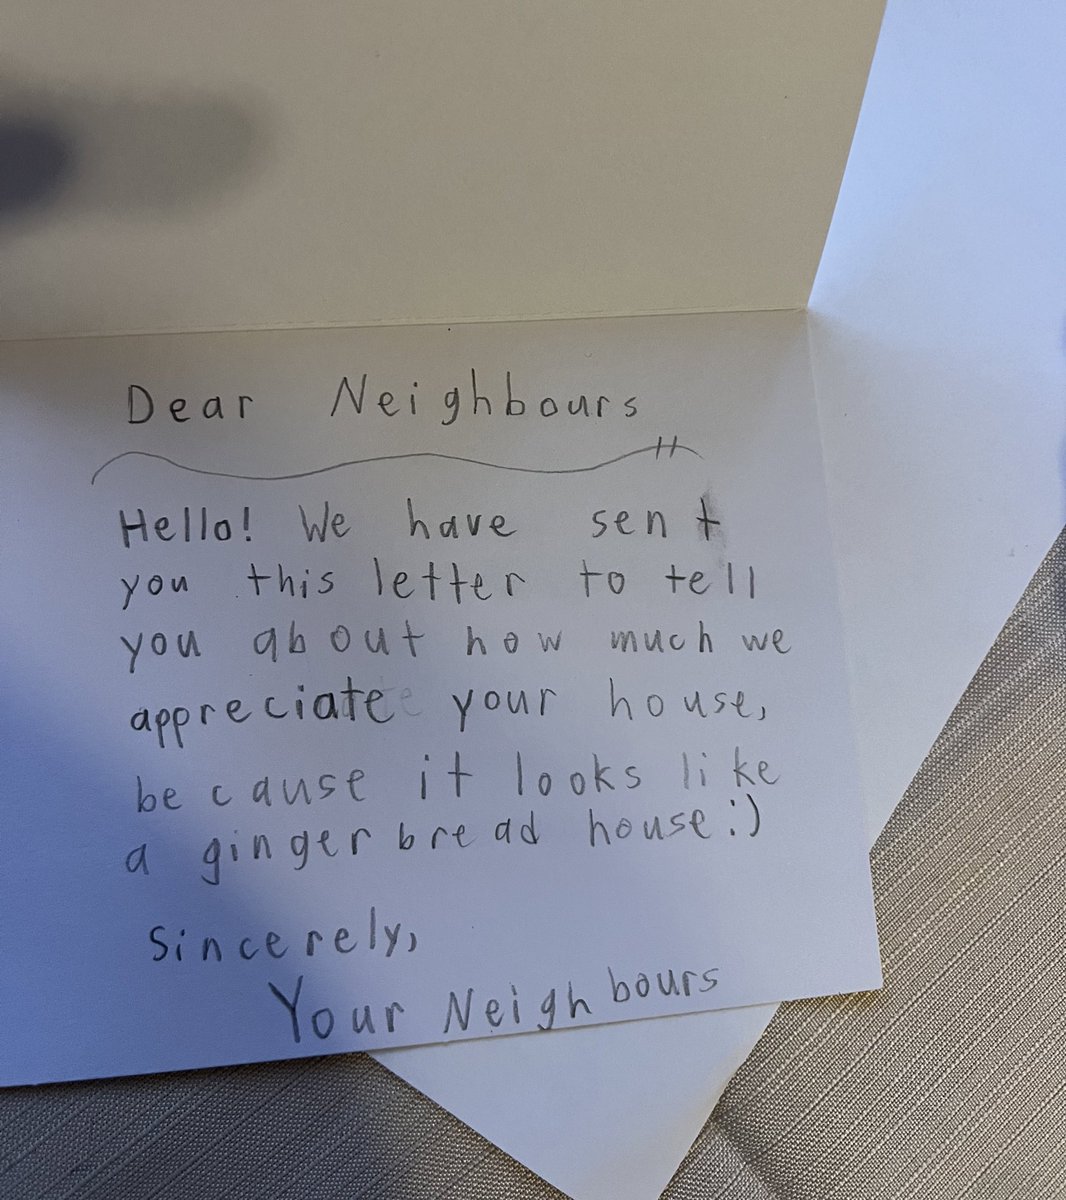 Dear Neighbours
Hello! We have sent
you this letter to tell
you about how much we
appreciate your house,
because it looks like
a gingerbread house:)
Sincerely,
Your Neighbours